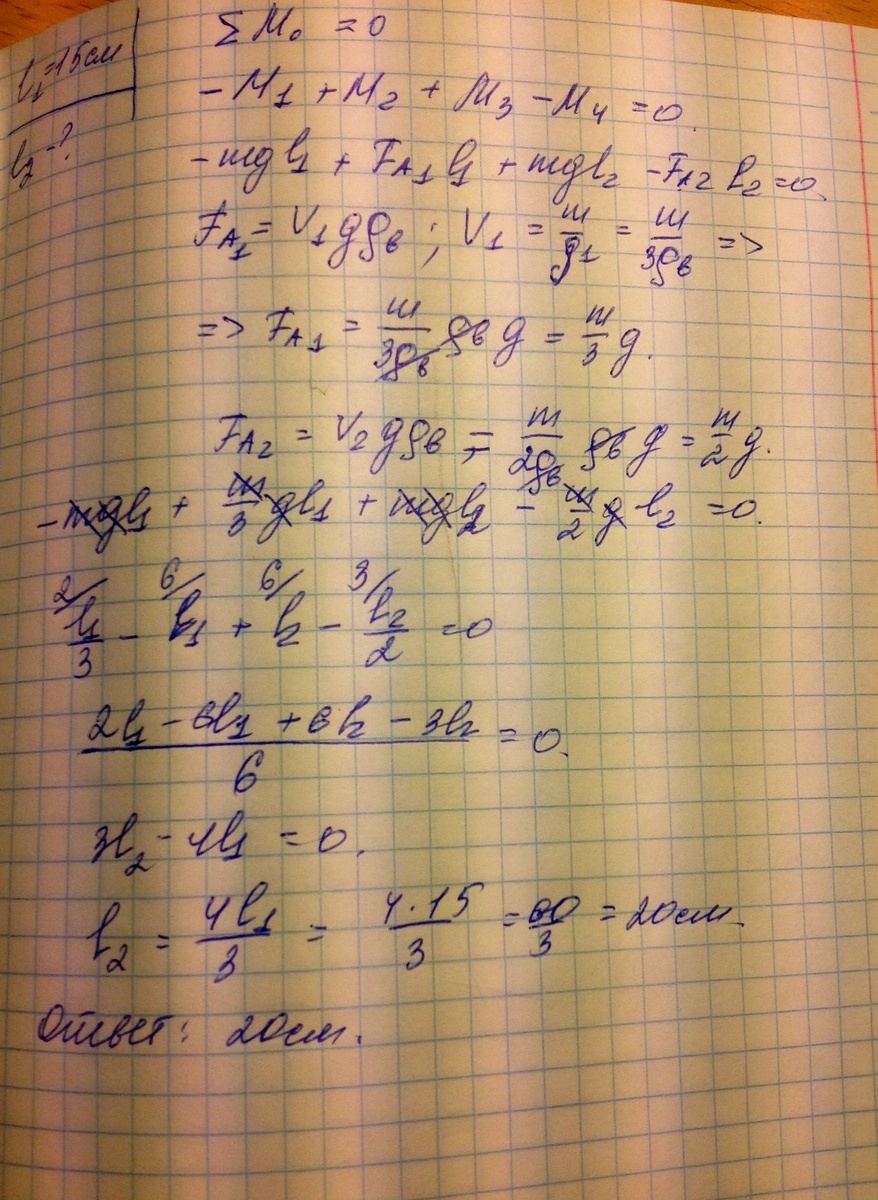 l₁=15см
l₂ - ?
ΣM₀ = 0
-M₁ + M₂ + M₃ - M₄ = 0.
-mgl₁ + F_A₁l₁ + mgl₂ - F_A₂ l₂ = 0.
F_A₁ = V₁gρв ; V₁ = m/ρ₁ = m/3ρв =>
=> F_A₁ = m/3ρв ρв g = m/3 g.
F_A₂ = V₂gρв = m/2ρв ρв g = m/2 g.
-mgl₁ + m/3 gl₁ + mgl₂ - m/2 g l₂ = 0.
2/ 6/ 6/ 3/
l₁/3 - l₁ + l₂ - l₂/2 = 0
2l₁ - 6l₁ + 6l₂ - 3l₂ / 6 = 0.
3l₂ - 4l₁ = 0.
l₂ = 4l₁/3 = 4·15/3 = 60/3 = 20см.
Ответ: 20см.